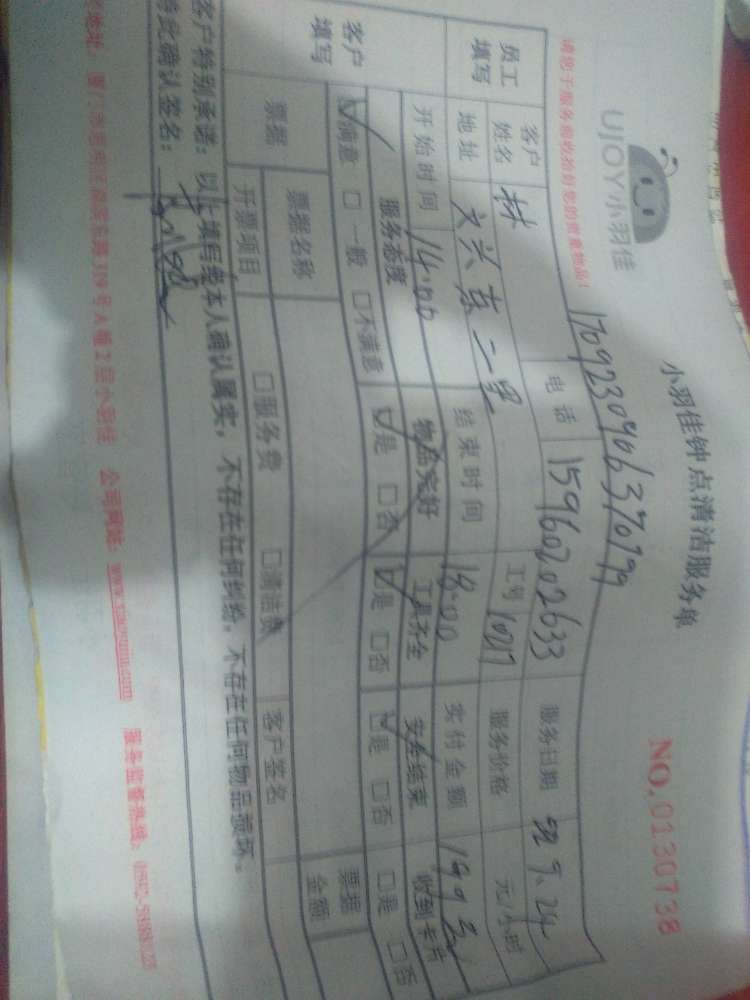 UJOY小羽佳
小羽佳钟点清洁服务单
NO.0130738
请您于服务前收拾好您的贵重物品！
1709230906370799
员工填写
客户姓名 林 电话 15960202633 服务日期 9.24
地址 文兴东二里 工号 10217 服务价格 元/小时
开始时间 14:00 结束时间 18:00 实付金额 199元
客户填写
服务态度 物品完好 工具齐全 安全结束 收到卡片
☑满意 □一般 □不满意 ☑是 □否 ☑是 □否 ☑是 □否 □是 □否
票据 票据名称 客户签名 票据金额
开票项目 □服务费 □清洁费
客户特别承诺：以上填写经本人确认属实，不存在任何纠纷，不存在任何物品损坏。
特此确认签名：
319号A幢2层小羽佳 公司网址： 服务监督热线：